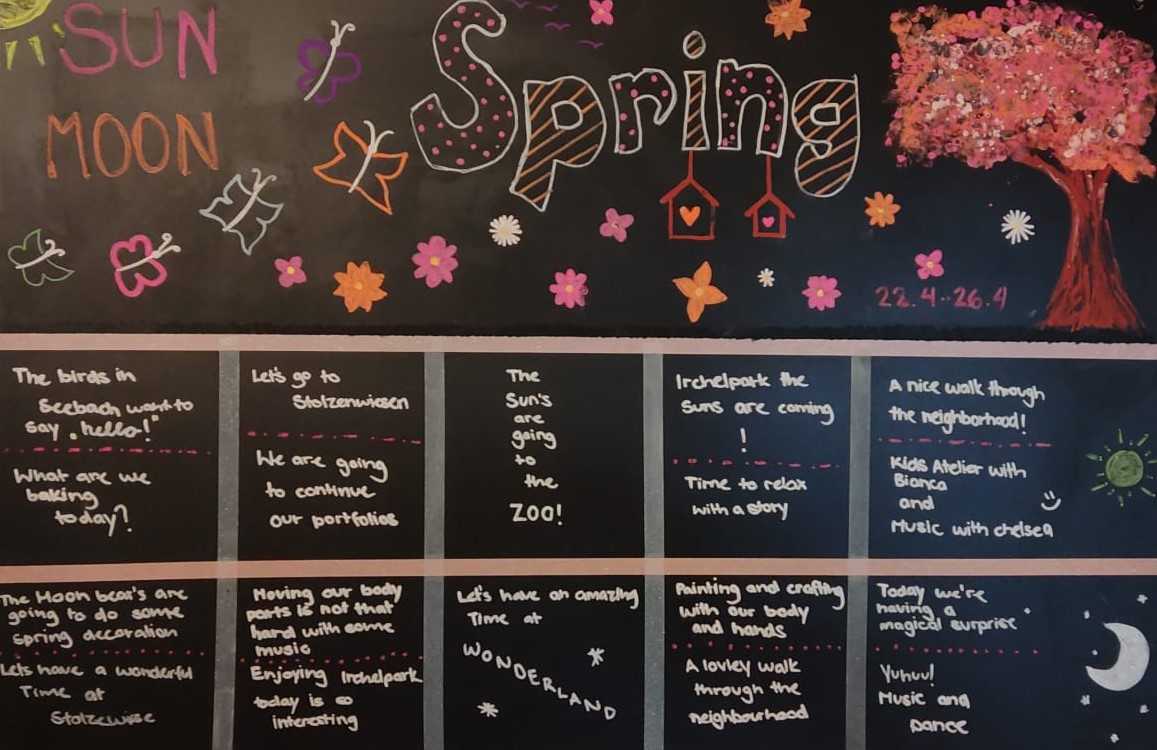 SUN
MOON
Spring
22.4-26.4
The birds in
Seebach want to
say „hello!"
What are we
baking
today?
Let's go to
Stolzenwiesen
We are going
to continue
our portfolios
The
Sun's
are
going
to
the
ZOO!
Irchelpark the
Suns are coming
!
Time to relax
with a story
A nice walk through
the neighborhood!
Kids Atelier with
Bianca
and
Music with chelsea
The Moon bear's are
going to do some
spring decoration
Let's have a wonderful
Time at
Stolzewise
Moving our body
parts is not that
hard with some
music
Enjoying Irchelpark
today is so
interesting
Let's have an amazing
Time at
WONDERLAND
Painting and crafting
with our body
and hands
A lovley walk
through the
neighbourhood
Today we're
having a
magical surprise
Yuhuu!
Music and
Dance